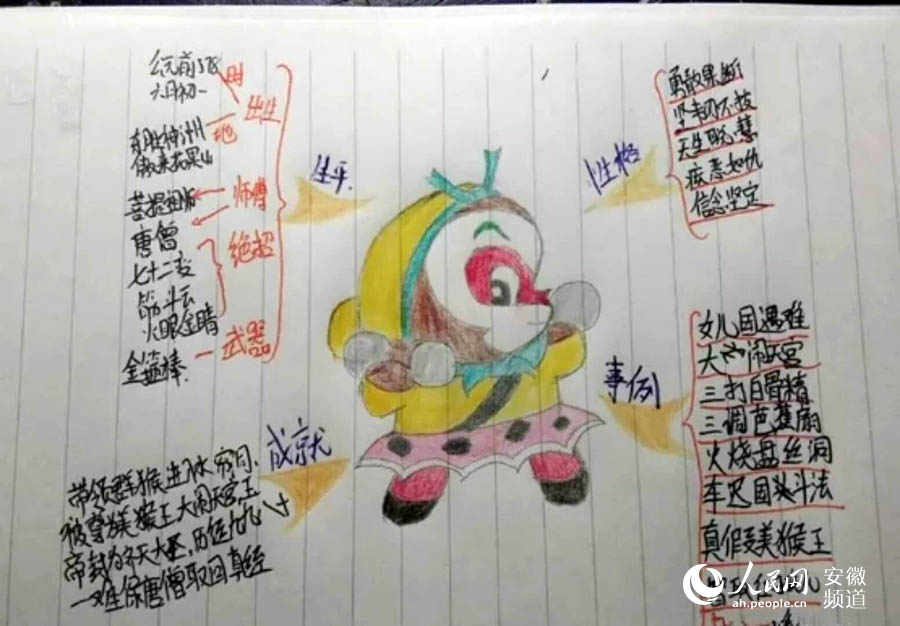 生平
公元前578
六月初一
时
出生
地
东胜神洲
傲来花果山
师傅
菩提祖师
唐僧
绝招
七十二变
筋斗云
火眼金睛
武器
金箍棒
性格
勇敢果断
坚韧不拔
天生聪慧
疾恶如仇
信念坚定
事例
女儿国遇难
大闹天宫
三打白骨精
三调芭蕉扇
火烧盘丝洞
车迟国头斗法
真假美猴王
成就
带领群猴进水帘洞、
被尊为美猴王大闹天宫王
帝封为齐天大圣,历经九九八十
一难保唐僧取回真经
人民网 安徽频道
ah.people.cn